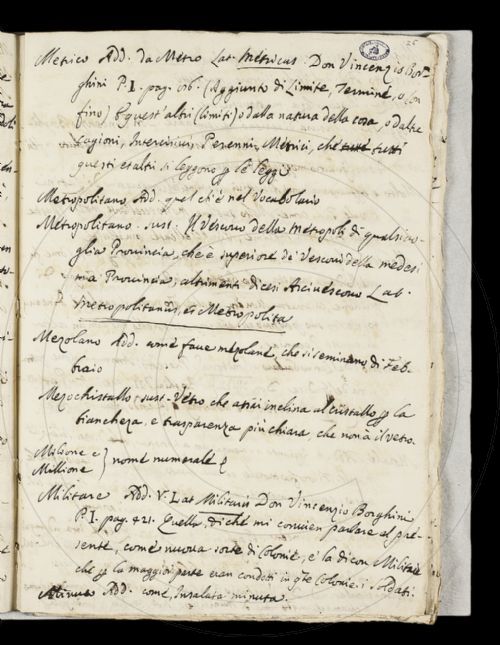 26
Metrico Add. da Metro Lat. Metricus Don Vincenzio Bor-
ghini P. I. pag. (Aggiunto di Limite, Termine, o con
fino) quest'altri (limiti) o dalla natura della cosa, o da altre
cagioni, Intercisivi Perenni, Metrici, che tutti
questi et altri si leggono le leggi
Metropolitano Add. quel ch'è nel Vocabolario
Metropolitano sust. Il Vescovo della Metropoli di qualsivo-
glia Provincia, che è superiore de' Vescovi della medesi-
ma Provincia, altrimenti dicesi Arcivescovo Lat.
Metropolitanus, et Metropolita
Mezolano Add. come fave mezolane, che si seminano di Feb-
braio
Mezochristallo sust. Vetro che assai inclina al cristallo la
bianchezza, e trasparenza più chiara che non à il vetro.
Milione e
Millione } nome numerale
Militare Add. V. Lat. Militaris Don Vincenzio Borghini
P. I. pag. 421. Quella, di che mi convien parlare al pre-
sente, com'è nuova sorte di Colonie, e la dicon Militare
che la maggior parte eran condotti in q.te Colonie i Soldati.
Minuto Add. come, Insalata minuta.